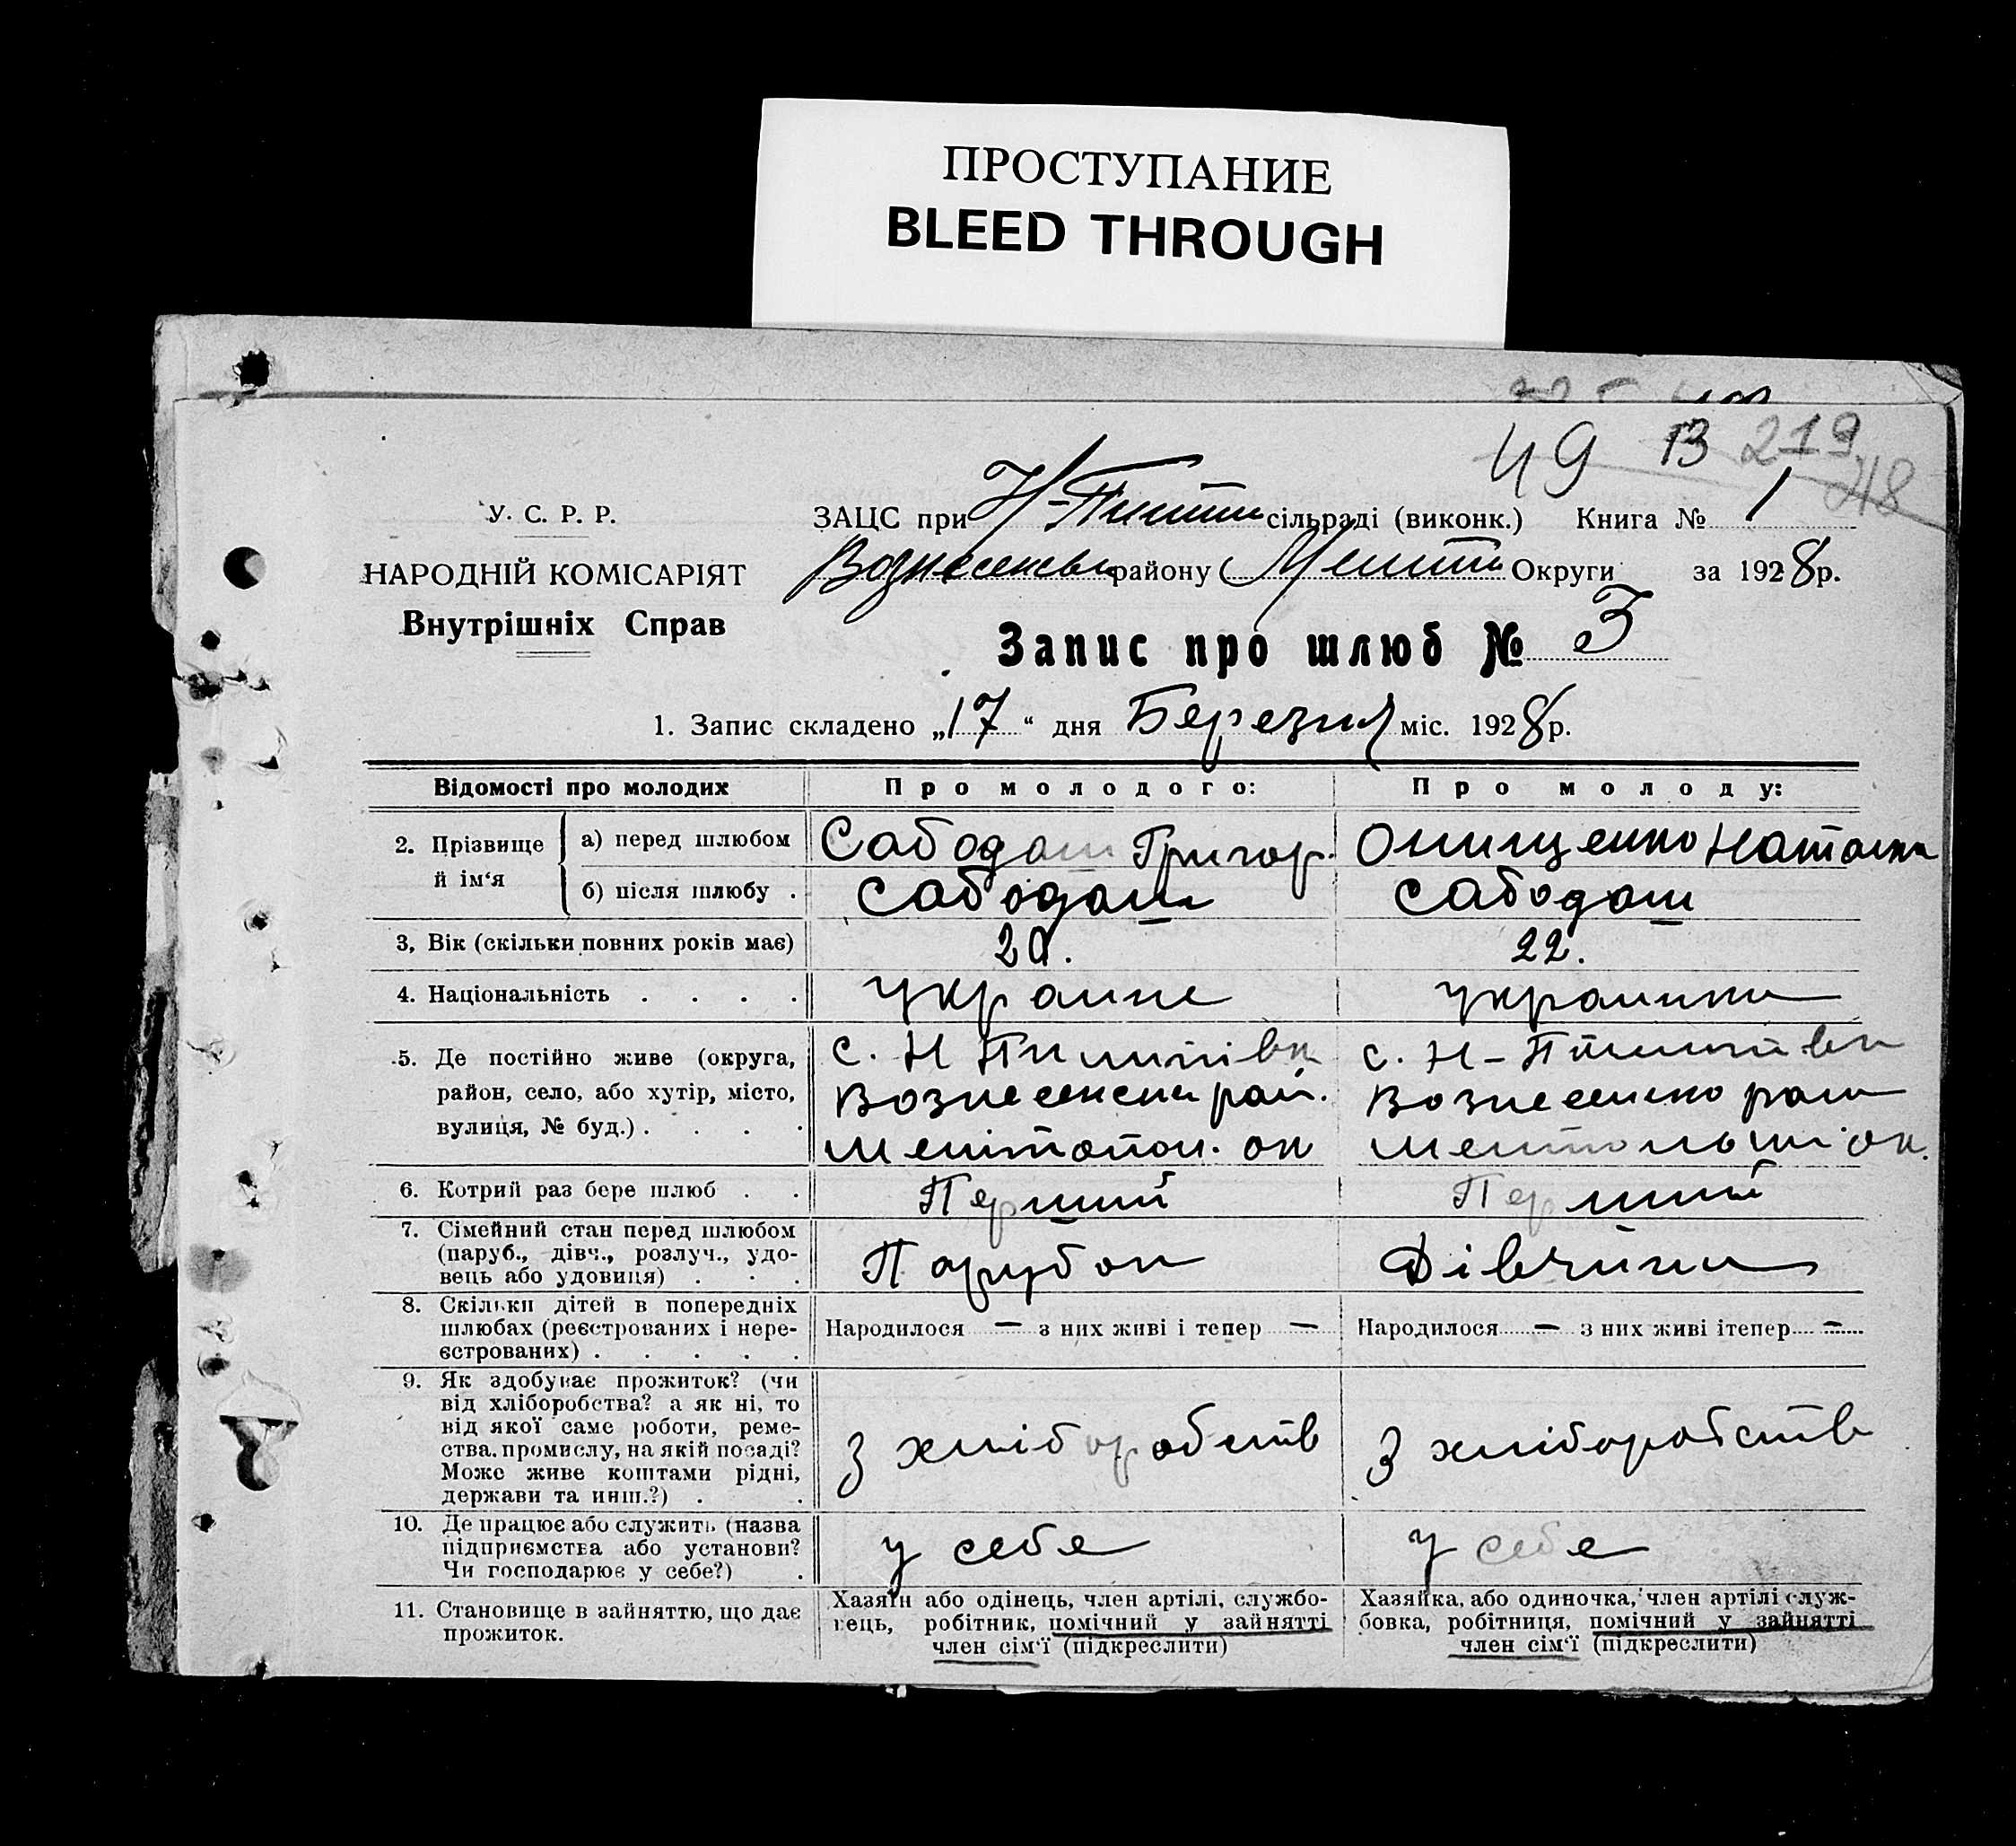 ПРОСТУПАНИЕ
BLEED THROUGH
49 13 219
48
У. С. Р. Р.
НАРОДНІЙ КОМІСАРІЯТ
Внутрішніх Справ
ЗАЦС при сільраді (виконк.) Книга № 1
району Округи за 1928 р.
Запис про шлюб № 3
1. Запис складено „17“ дня Березня міс. 1928 р.
Відомості про молодих
Про молодого:
Про молоду:
2. Прізвище й ім‘я
а) перед шлюбом
Сабодаш Григор.
Онищенко Наталка
б) після шлюбу .
Сабодаш
Сабодаш
3. Вік (скільки повних років має)
20.
22.
4. Національність . . . .
украине
украинка
5. Де постійно живе (округа,
район, село, або хутір, місто,
вулиця, № буд.) . . . .
с. Н Пилипівк
Вознесенськ рай.
Мелітопол. ок
с. Н-
ок.
6. Котрий раз бере шлюб . .
Перший
Перший
7. Сімейний стан перед шлюбом
(паруб., дівч., розлуч., удо-
вець або удовиця) . . .
Парубок
Дівчина
8. Скільки дітей в попередніх
шлюбах (реєстрованих і нере-
єстрованих) . . . . .
Народилося — з них живі і тепер —
Народилося — з них живі ітепер —
9. Як здобуває прожиток? (чи
від хліборобства? а як ні, то
від якої саме роботи, реме-
ства, промислу, на якій посаді?
Може живе коштами рідні,
держави та инш.?) . .
З хліборобств
З хліборобств
10. Де працює або служить (назва
підприємства або установи?
Чи господарює у себе?) .
у себе
у себе
11. Становище в зайняттю, що дає
прожиток.
Хазяїн або одінець, член артілі, службо-
вець, робітник, помічний у зайнятті
член сім‘ї (підкреслити)
Хазяйка, або одиночка, член артілі служ-
бовка, робітниця, помічний у зайнятті
член сім‘ї (підкреслити)